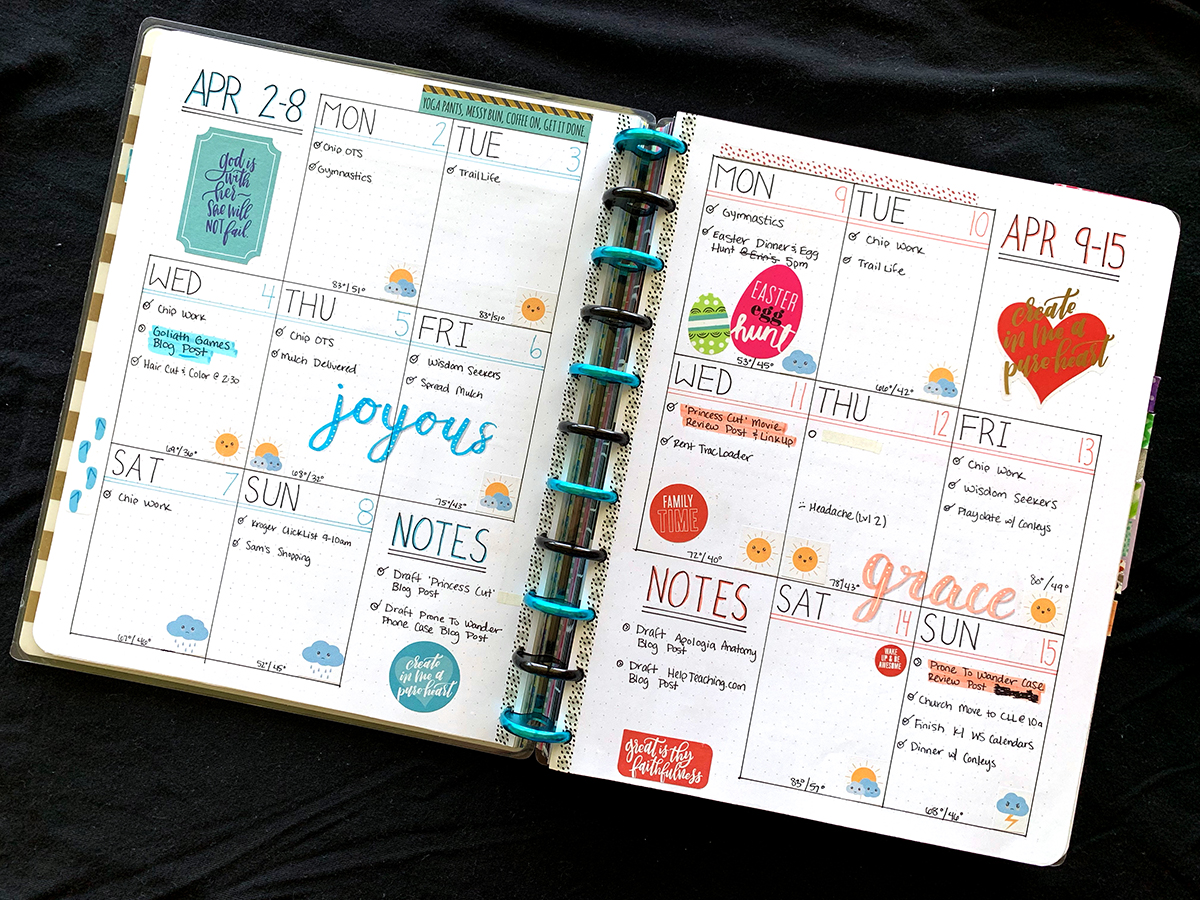 APR 2-8
YOGA PANTS, MESSY BUN, COFFEE ON, GET IT DONE.
God is
with
her
she will
NOT fail.
MON 2
Chip OTS
Gymnastics
83°/51°
TUE 3
Trail Life
83°/51°
WED 4
Chip Work
Goliath Games
Blog Post
Hair Cut & Color @ 2:30
69°/36°
THU 5
Chip OTS
Mulch Delivered
68°/32°
joyous
FRI 6
Wisdom Seekers
Spread Mulch
75°/43°
SAT 7
Chip Work
67°/46°
SUN 8
Kroger ClickList 9-10am
Sam's Shopping
52°/45°
NOTES
Draft 'Princess Cut'
Blog Post
Draft Prone To Wander
Phone Case Blog Post
create
in me a
pure heart
MON 9
Gymnastics
Easter Dinner & Egg
Hunt @ Erin's 5pm
EASTER
egg
hunt
53°/45°
TUE 10
Chip Work
Trail Life
66°/42°
APR 9-15
create
in me a
pure heart
WED 11
'Princess Cut' Movie
Review Post & LinkUp
Rent Trac Loader
FAMILY
TIME
72°/40°
THU 12
Headache (Lvl 2)
78°/43°
grace
FRI 13
Chip Work
Wisdom Seekers
Playdate w/ Conleys
80°/49°
NOTES
Draft Apologia Anatomy
Blog Post
Draft HelpTeaching.com
Blog Post
great is thy
faithfulness
SAT 14
WAKE
UP & BE
AWESOME
83°/57°
SUN 15
Prone To Wander Case
Review Post
Church Move to CLL @ 10a
Finish K-1 WS Calendars
Dinner w/ Conleys
68°/46°